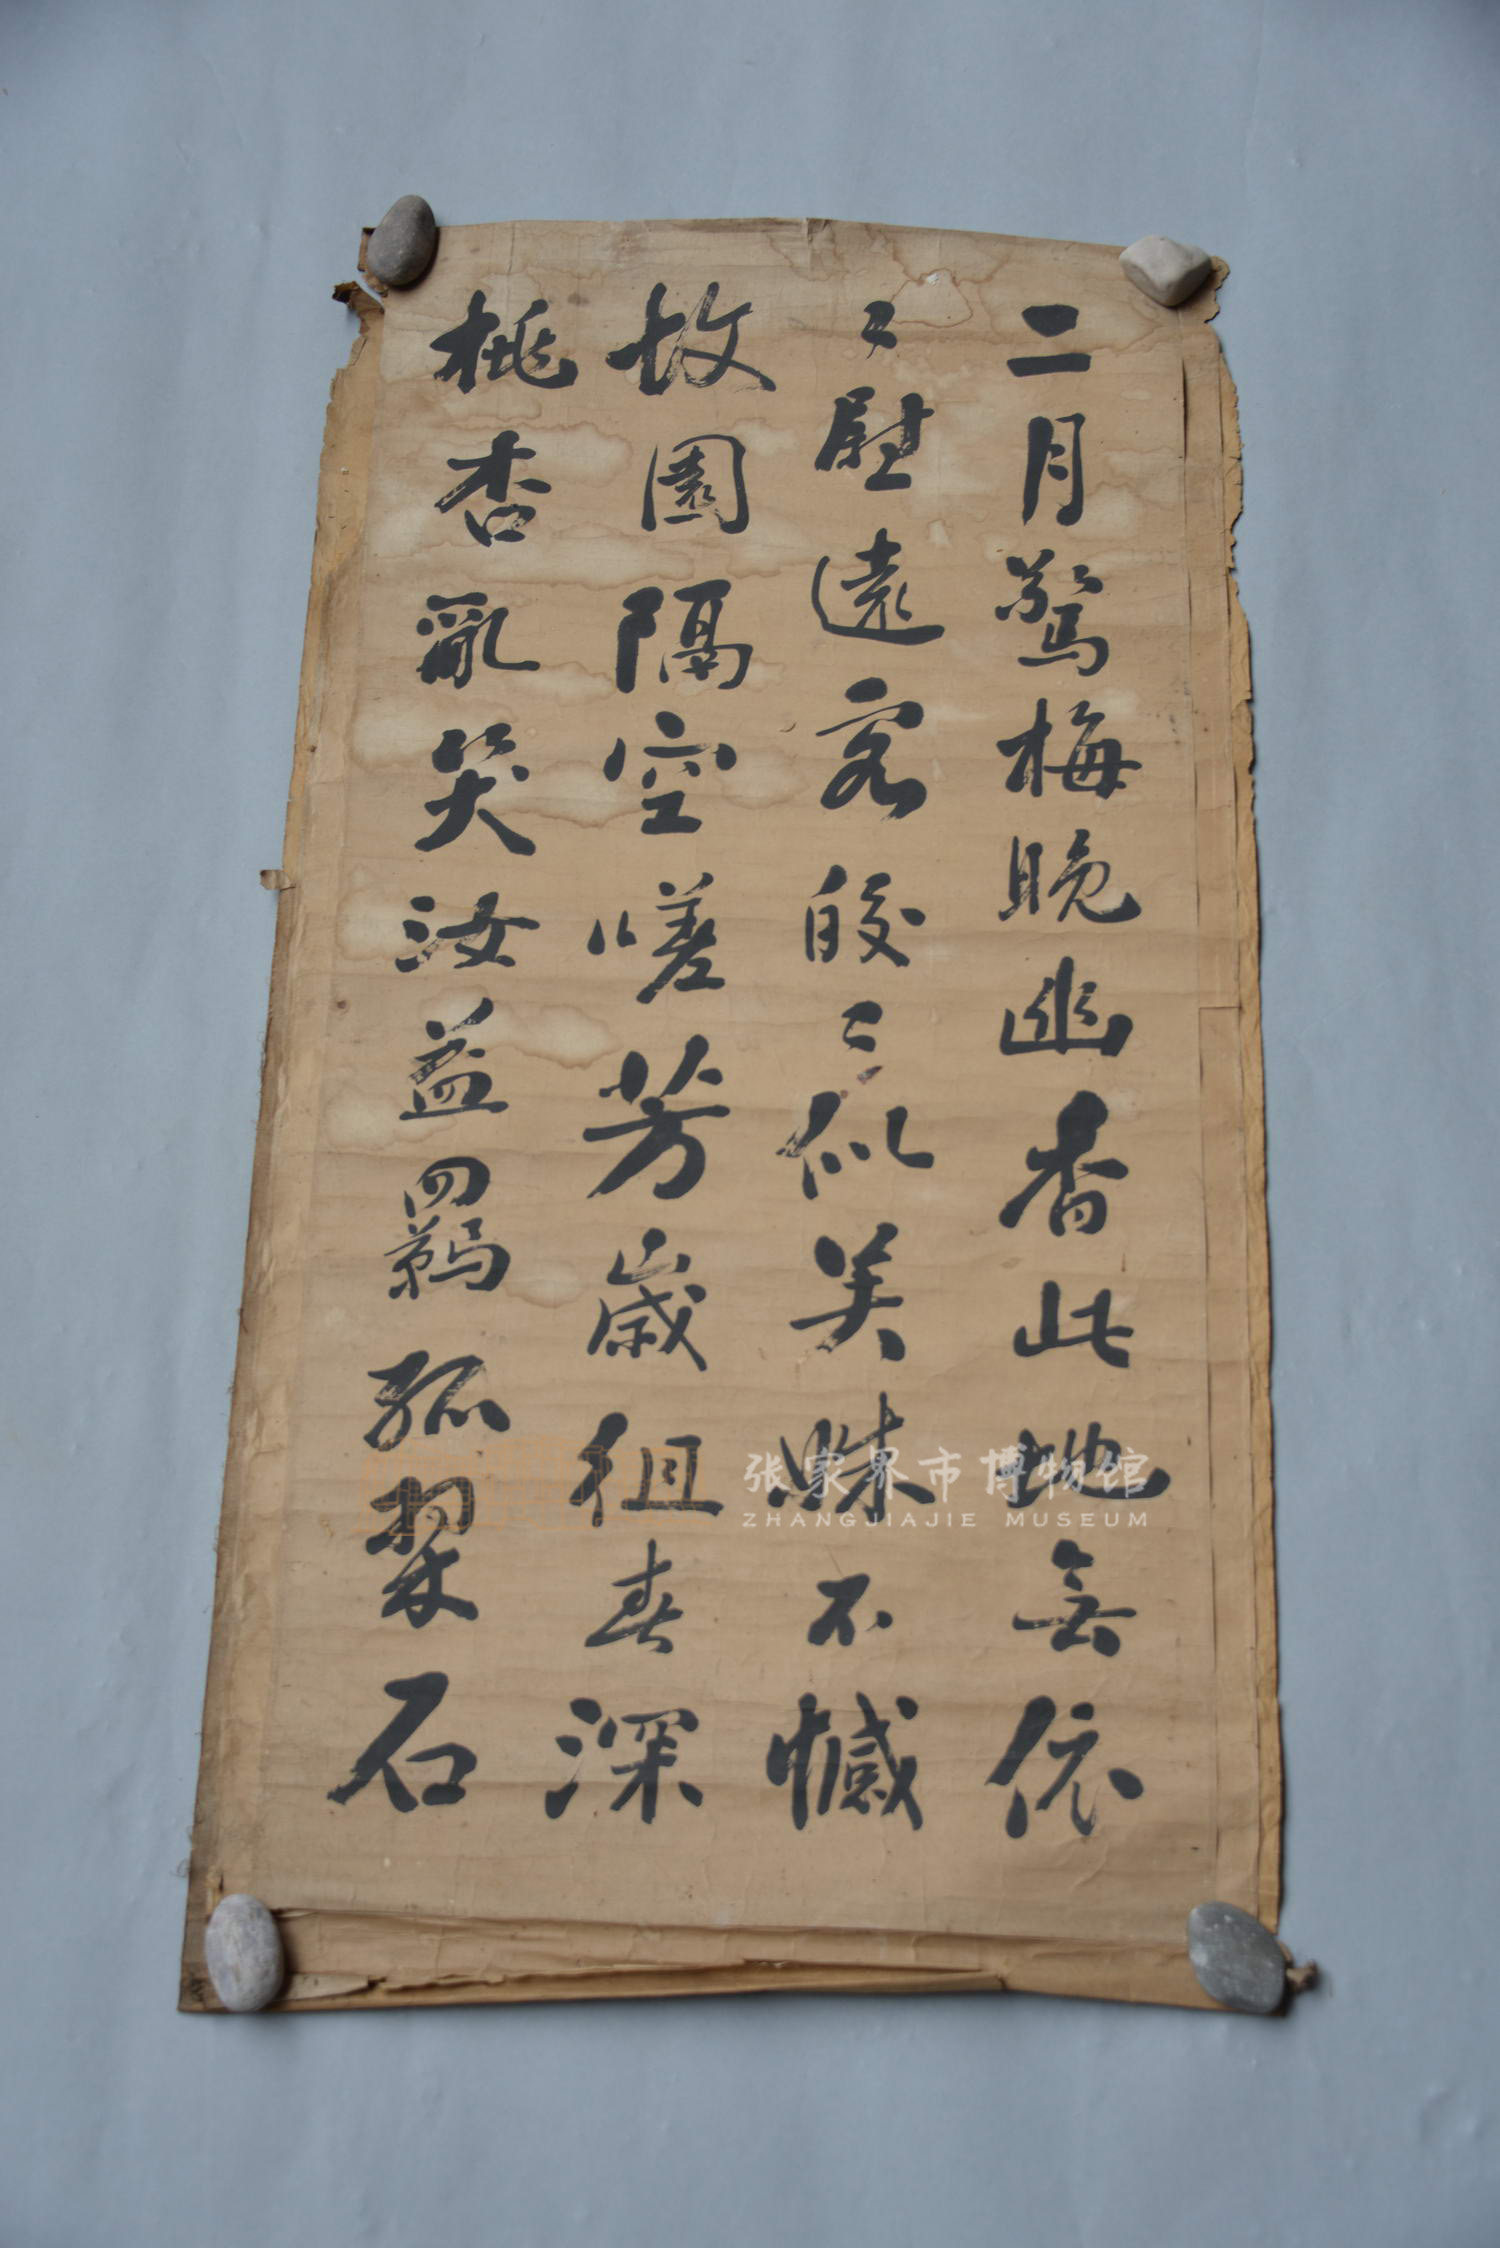 二月驚梅晚幽香此地無依
〻慰遠客皎〻似美姝不憾
故園隔空嗟芳歲徂春深
桃杏亂笑汝益羈孤翠石
张家界市博物馆
ZHANGJIAJIE MUSEUM